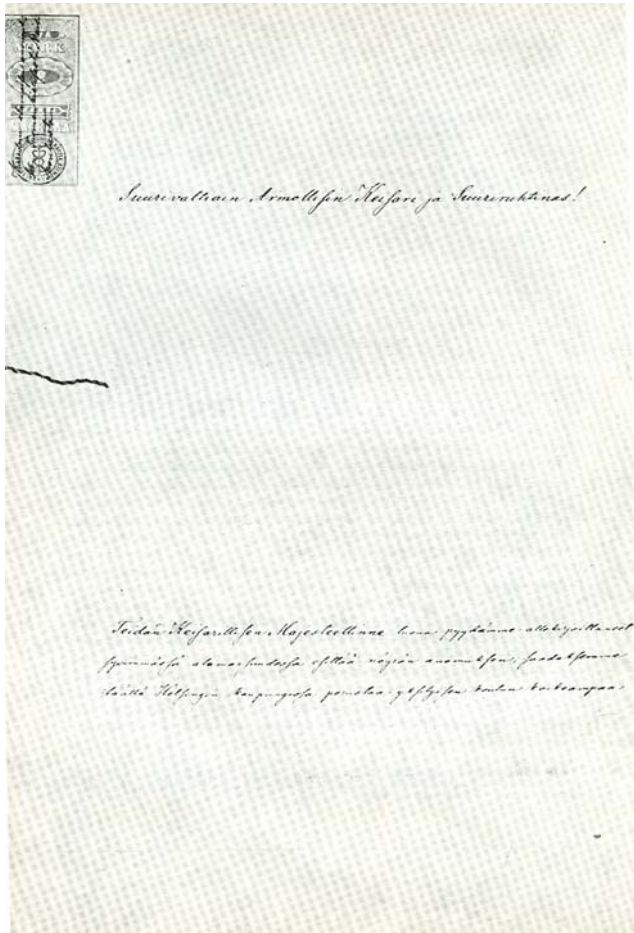 MARK
Suurivaltiain Armollisin Keisari ja Suuriruhtinas!
Teidän Keisarillisen Majesteettinne luona pyydämme allekirjoittaneet
syvimmässä alamaisuudessa esittää nöyrän anomuksen, saadaksemme
täällä Helsingin kaupungissa perustaa yksityisen koulun korkeampaa